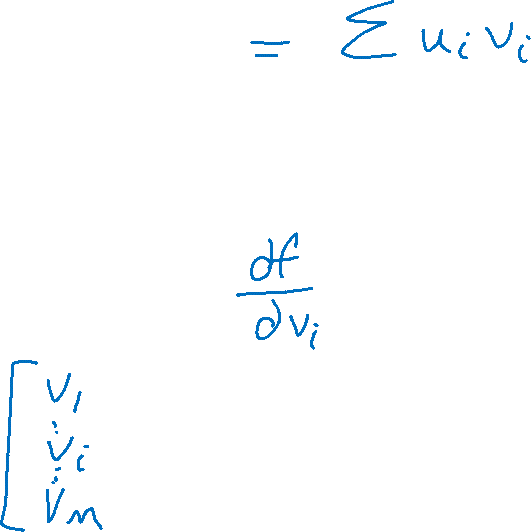 = Σ uᵢ vᵢ
df
dvᵢ
v₁
⋮
vᵢ
⋮
vₙ